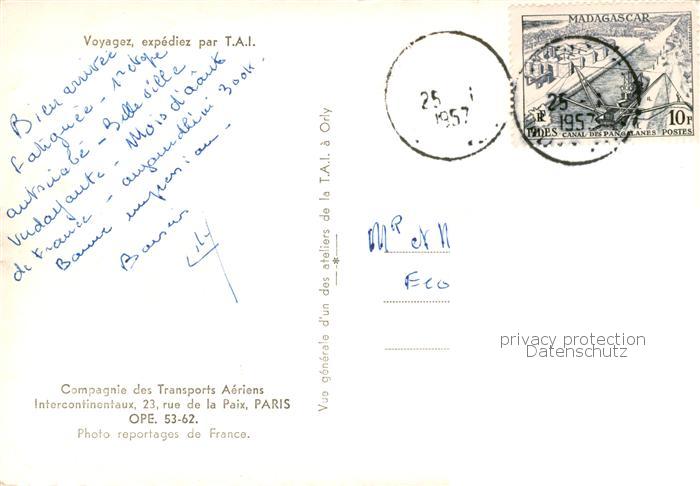 Voyagez, expédiez par T.A.I.
Bien arrivée
fatiguée - 1e étape
antsirabé - Belle ville
Verdoyante - Mois d'août
de France - aujourd'hui 300K.
Bonne impression -
Baisers
Vue générale d'un des ateliers de la T.A.I. à Orly
Compagnie des Transports Aériens
Intercontinentaux, 23, rue de la Paix, PARIS
OPE. 53-62.
Photo reportages de France.
25 1
1957
MADAGASCAR
25
1957
10F
FIDES CANAL DES PANGALANES POSTES
Mr et M
privacy protection
Datenschutz